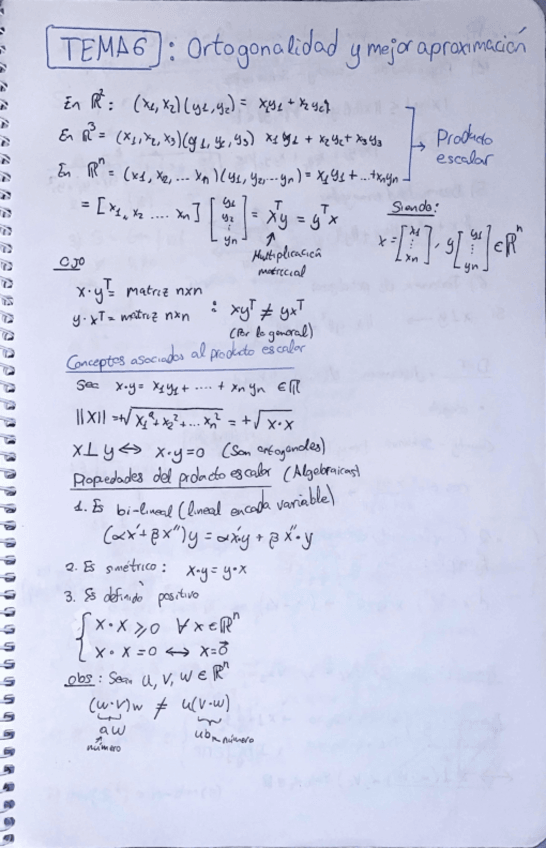 TEMA 6 : Ortogonalidad y mejor aproximación
En ℝ²: (x₁, x₂)(y₁, y₂) = x₁y₁ + x₂y₂
En ℝ³ = (x₁, x₂, x₃)(y₁, y₂, y₃) x₁y₁ + x₂y₂ + x₃y₃
En ℝⁿ = (x₁, x₂, ... xₙ)(y₁, y₂, ... yₙ) = x₁y₁ + ... + xₙyₙ
→ Producto escalar
= [x₁, x₂ .... xₙ] [y₁ y₂ ⋮ yₙ] = xᵀy = yᵀx
↑ Multiplicación matricial
Siendo:
x = [x₁ ⋮ xₙ], y [y₁ ⋮ yₙ] ∈ ℝⁿ
OJO
x·yᵀ = matriz nxn
y·xᵀ = matriz nxn : xyᵀ ≠ yxᵀ
(Por lo general)
Conceptos asociados al producto escalar
Sea x·y = x₁y₁ + .... + xₙyₙ ∈ ℝ
||X|| = +√x₁² + x₂² + ... xₙ² = +√x·x
x ⊥ y ⟷ x·y = 0 (Son ortogonales)
Propiedades del producto escalar (Algebraicas)
1. Es bi-lineal (lineal en cada variable)
(αx' + βx'')y = αx'y + βx''·y
2. Es simétrico: x·y = y·x
3. Es definido positivo
{ x·x ⩾ 0 ∀x ∈ ℝⁿ
x·x = 0 ⟷ x = 0⃗
obs: Sean u, v, w ∈ ℝⁿ
(u·v)w ≠ u(v·w)
aw ub → número
número